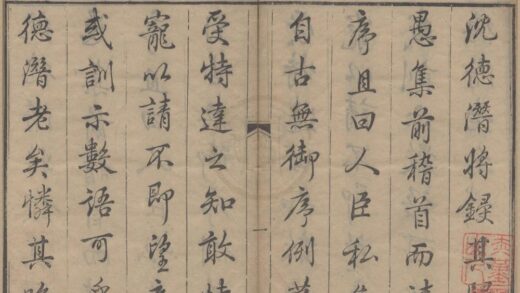 沈德潛將錄其
愚集前稽首而請
序且曰人臣私
自古無御序例
一
受特達之知敢恃
寵以請不即望
或訓示數語可
德潛老矣憐其